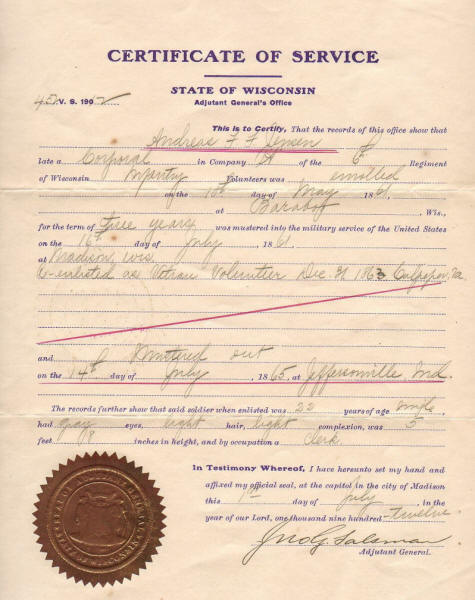 CERTIFICATE OF SERVICE
STATE OF WISCONSIN
Adjutant General's Office
V. S. 1912
This is to Certify, That the records of this office show that
Andreas F F Jensen
late a Corporal in Company "A" of the 6th Regiment
of Wisconsin Infantry Volunteers was enrolled
on the day of May 1861,
at Baraboo, Wis.,
for the term of Three years was mustered into the military service of the United States
on the 16th day of July 1861.
at Madison, Wis.
enlisted as Volunteer Dec 31 1863 Va
and Mustered out
on the 14th day of July, 1865, at Jeffersonville Ind.
The records further show that said soldier when enlisted was 22 years of age single
had gray eyes, light hair, light complexion, was 5
feet 8 inches in height, and by occupation a Clerk.
In Testimony Whereof, I have hereunto set my hand and
affixed my official seal, at the capitol in the city of Madison
this day of July, in the
year of our Lord, one thousand nine hundred Twelve
Jno G. Salsman
Adjutant General.